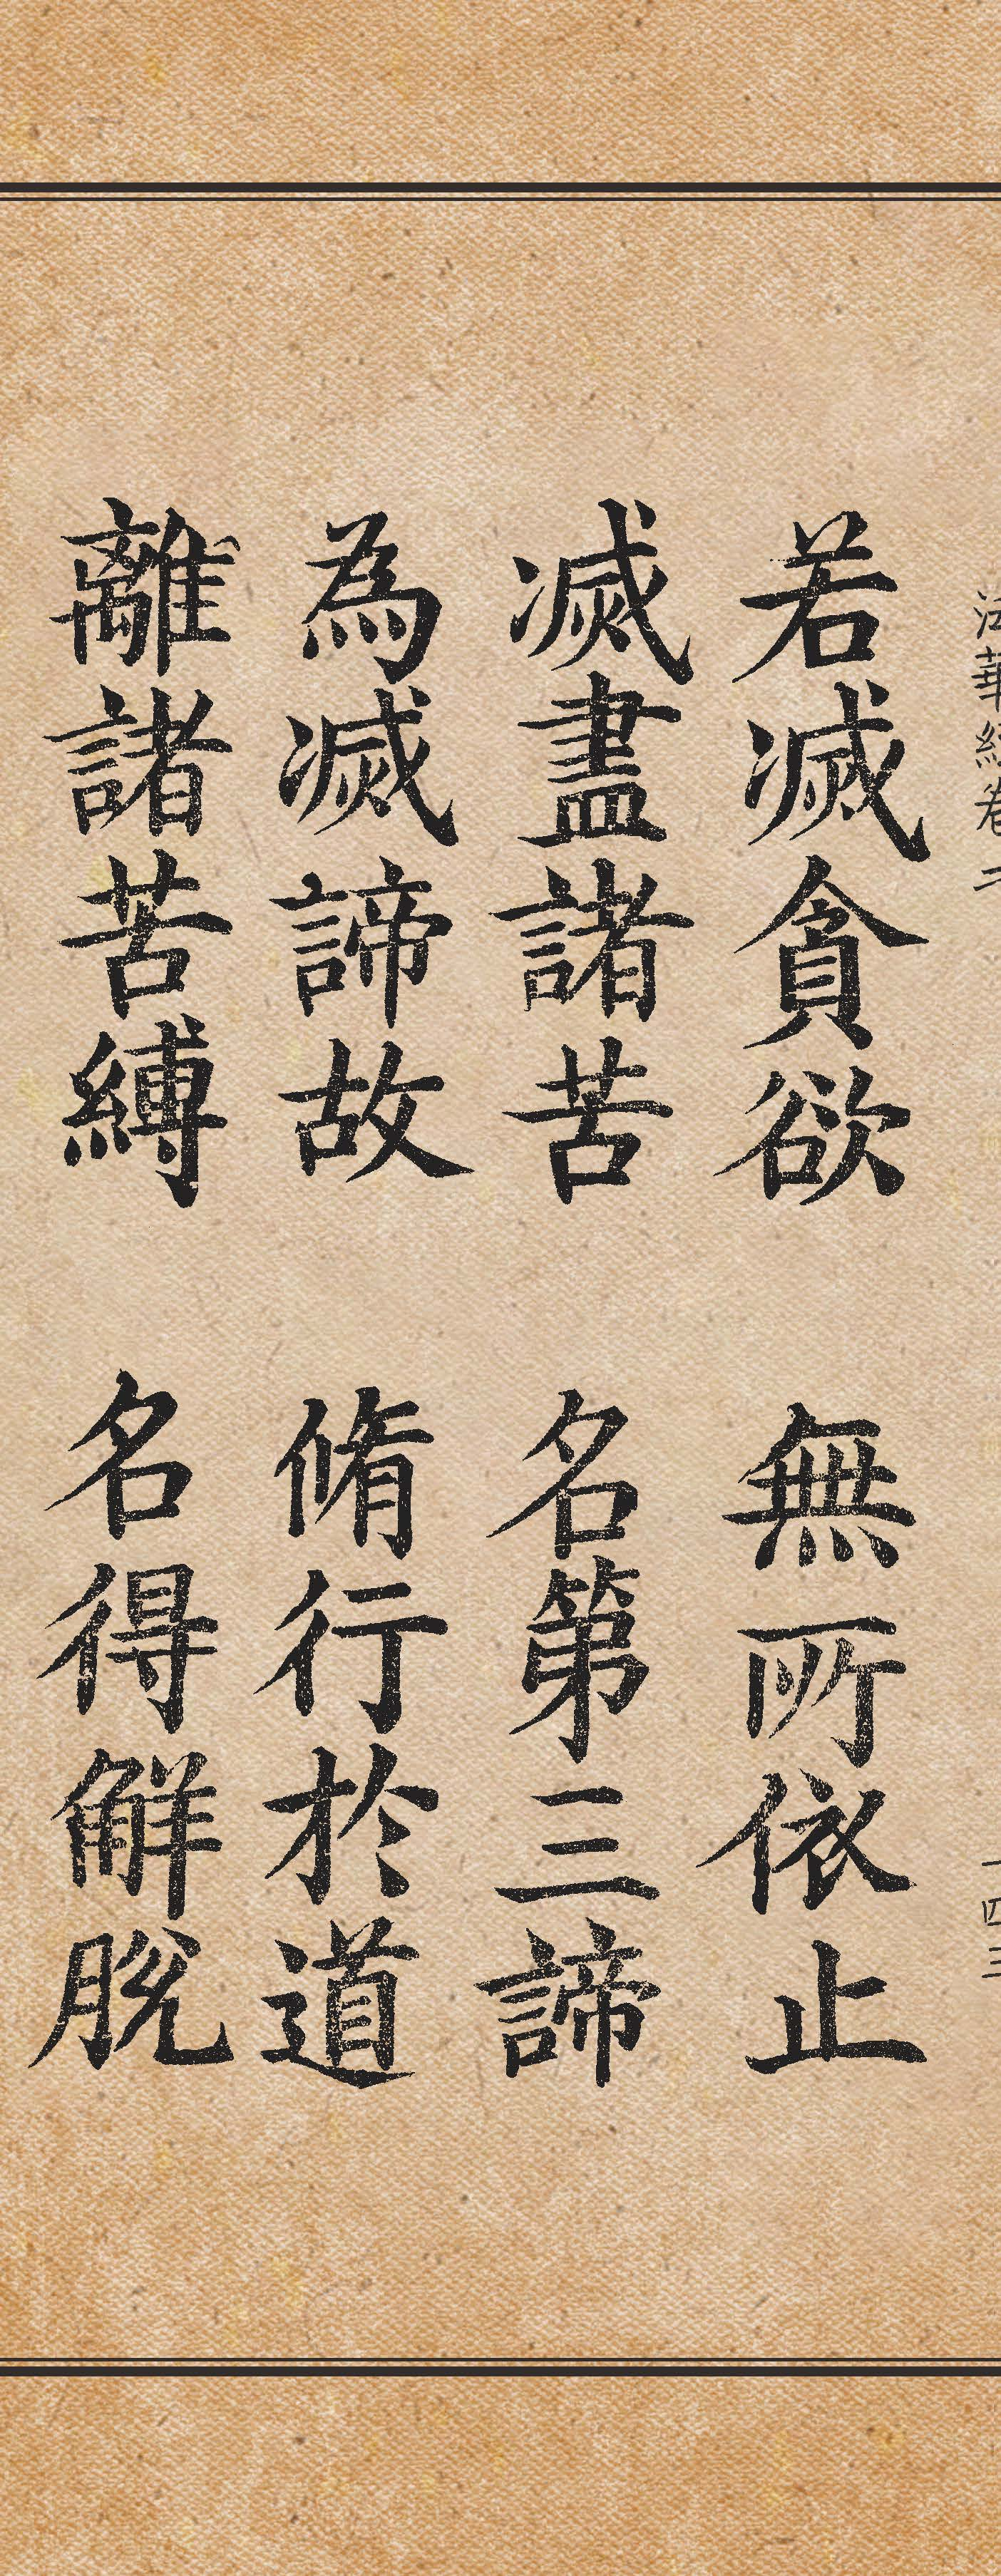 法華經卷二 一四三
若滅貪欲 無所依止
滅盡諸苦 名第三諦
為滅諦故 脩行於道
離諸苦縛 名得解脫